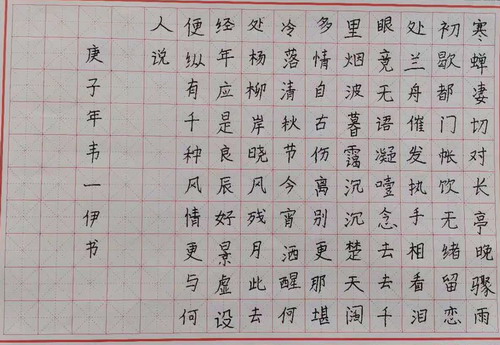 寒蝉凄切对长亭晚骤雨
初歇都门帐饮无绪留恋
处兰舟催发执手相看泪
眼竟无语凝噎念去去千
里烟波暮霭沉沉楚天阔
多情自古伤离别更那堪
冷落清秋节今宵洒醒何
处杨柳岸晓风残月此去
经年应是良辰好景虚设
便纵有千种风情更与何
人说
庚子年韦一伊书